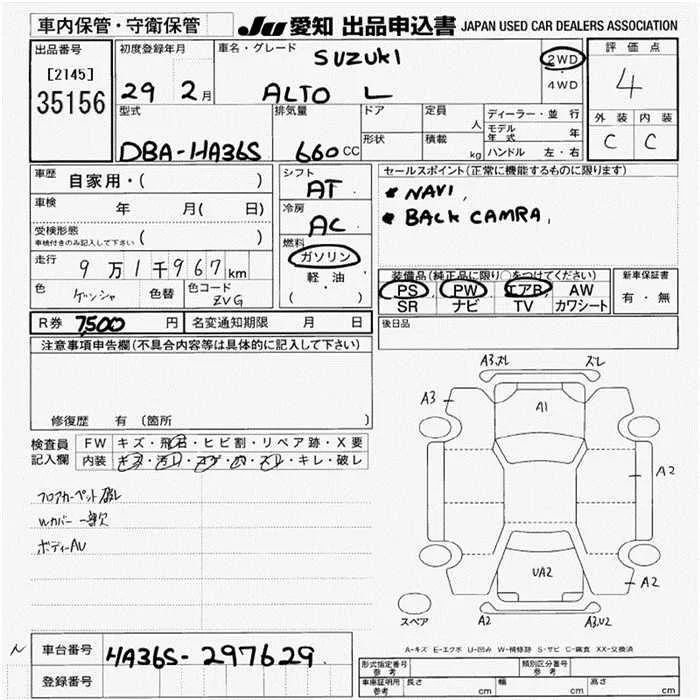 車内保管・守衛保管
JU 愛知 出品申込書 JAPAN USED CAR DEALERS ASSOCIATION
出品番号
[2145]
35156
初度登録年月
29 2月
車名・グレード
SUZUKI
ALTO L
2WD
・
4WD
評価点
4
外装 内装
C C
型式
DBA-HA36S
排気量
660 CC
ドア
形状
定員
人
積載
kg
ディーラー・並行
モデル年式 年
ハンドル 左・右
車歴
自家用・( )
車検
年 月( 日)
受検形態
車検付きのみ記入して下さい ( )
走行
9万1千967km
色
ゲンシャ
色替
色コード
ZVG
シフト
AT
冷房
AC
燃料
ガソリン
軽・油
( )
セールスポイント(正常に機能するものに限ります)
* NAVI,
* BACK CAMRA,
装備品(純正品に限り○をつけてください)
PS PW エアB AW
SR ナビ TV カワシート
新車保証書
有・無
R券 7,500 円 名変通知期限 月 日
後日品
注意事項申告欄(不具合内容等は具体的に記入して下さい)
修復歴 有 〔箇所 〕
検査員
記入欄
FW キズ・飛石・ヒビ割・リペア跡・X要
内装 キズ・汚れ・コゲ・穴・スレ・キレ・破レ
フロアカーペット破レ
Wカバー 一部欠
ボディーAU
A3.ズレ ズレ
A3
A1
A2
UA2
A2
A2 A3.U2
スペア
A-キズ E-エクボ U-凹み W-補修跡 S-サビ C-腐食 XX-交換済
N
車台番号
HA36S-297629
登録番号
形式指定番号
参考
類別区分番号
参考
車庫証明用
参考
長さ cm 幅 cm 高さ cm